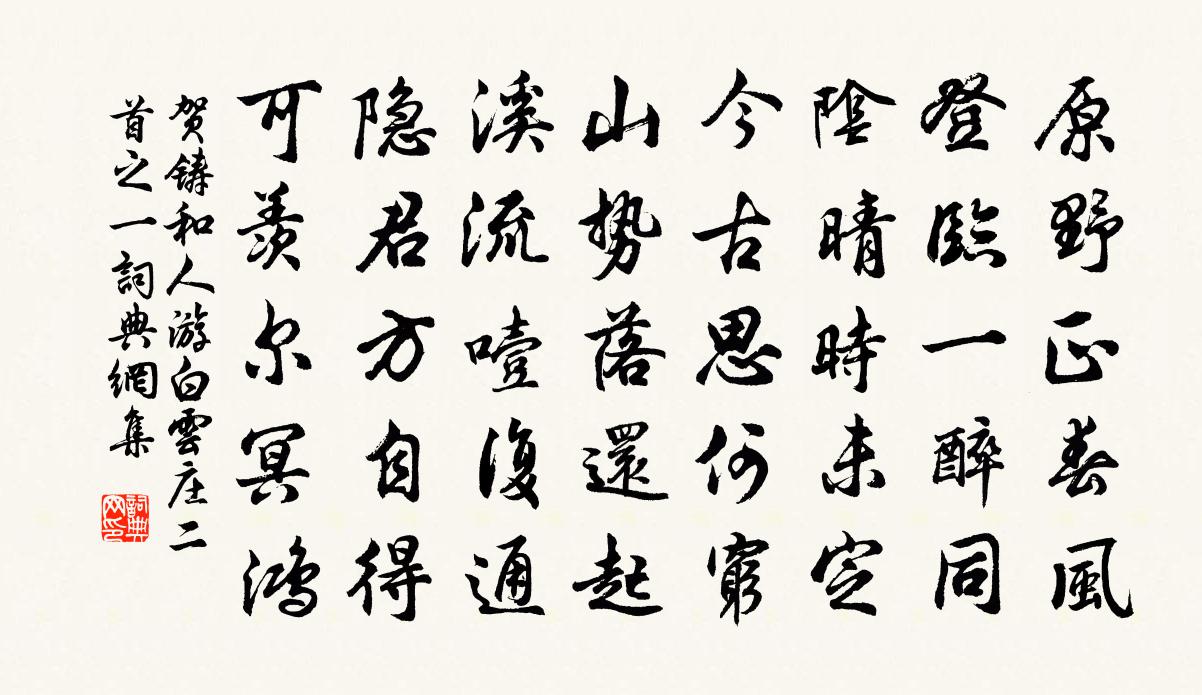 原野正春風
登臨一醉同
陰晴時未定
今古思何窮
山勢落還起
溪流噎復通
隐君方自得
可羨尔冥鴻
贺鑄和人游白雲庄二
首之一詞典網集
詞典
网印